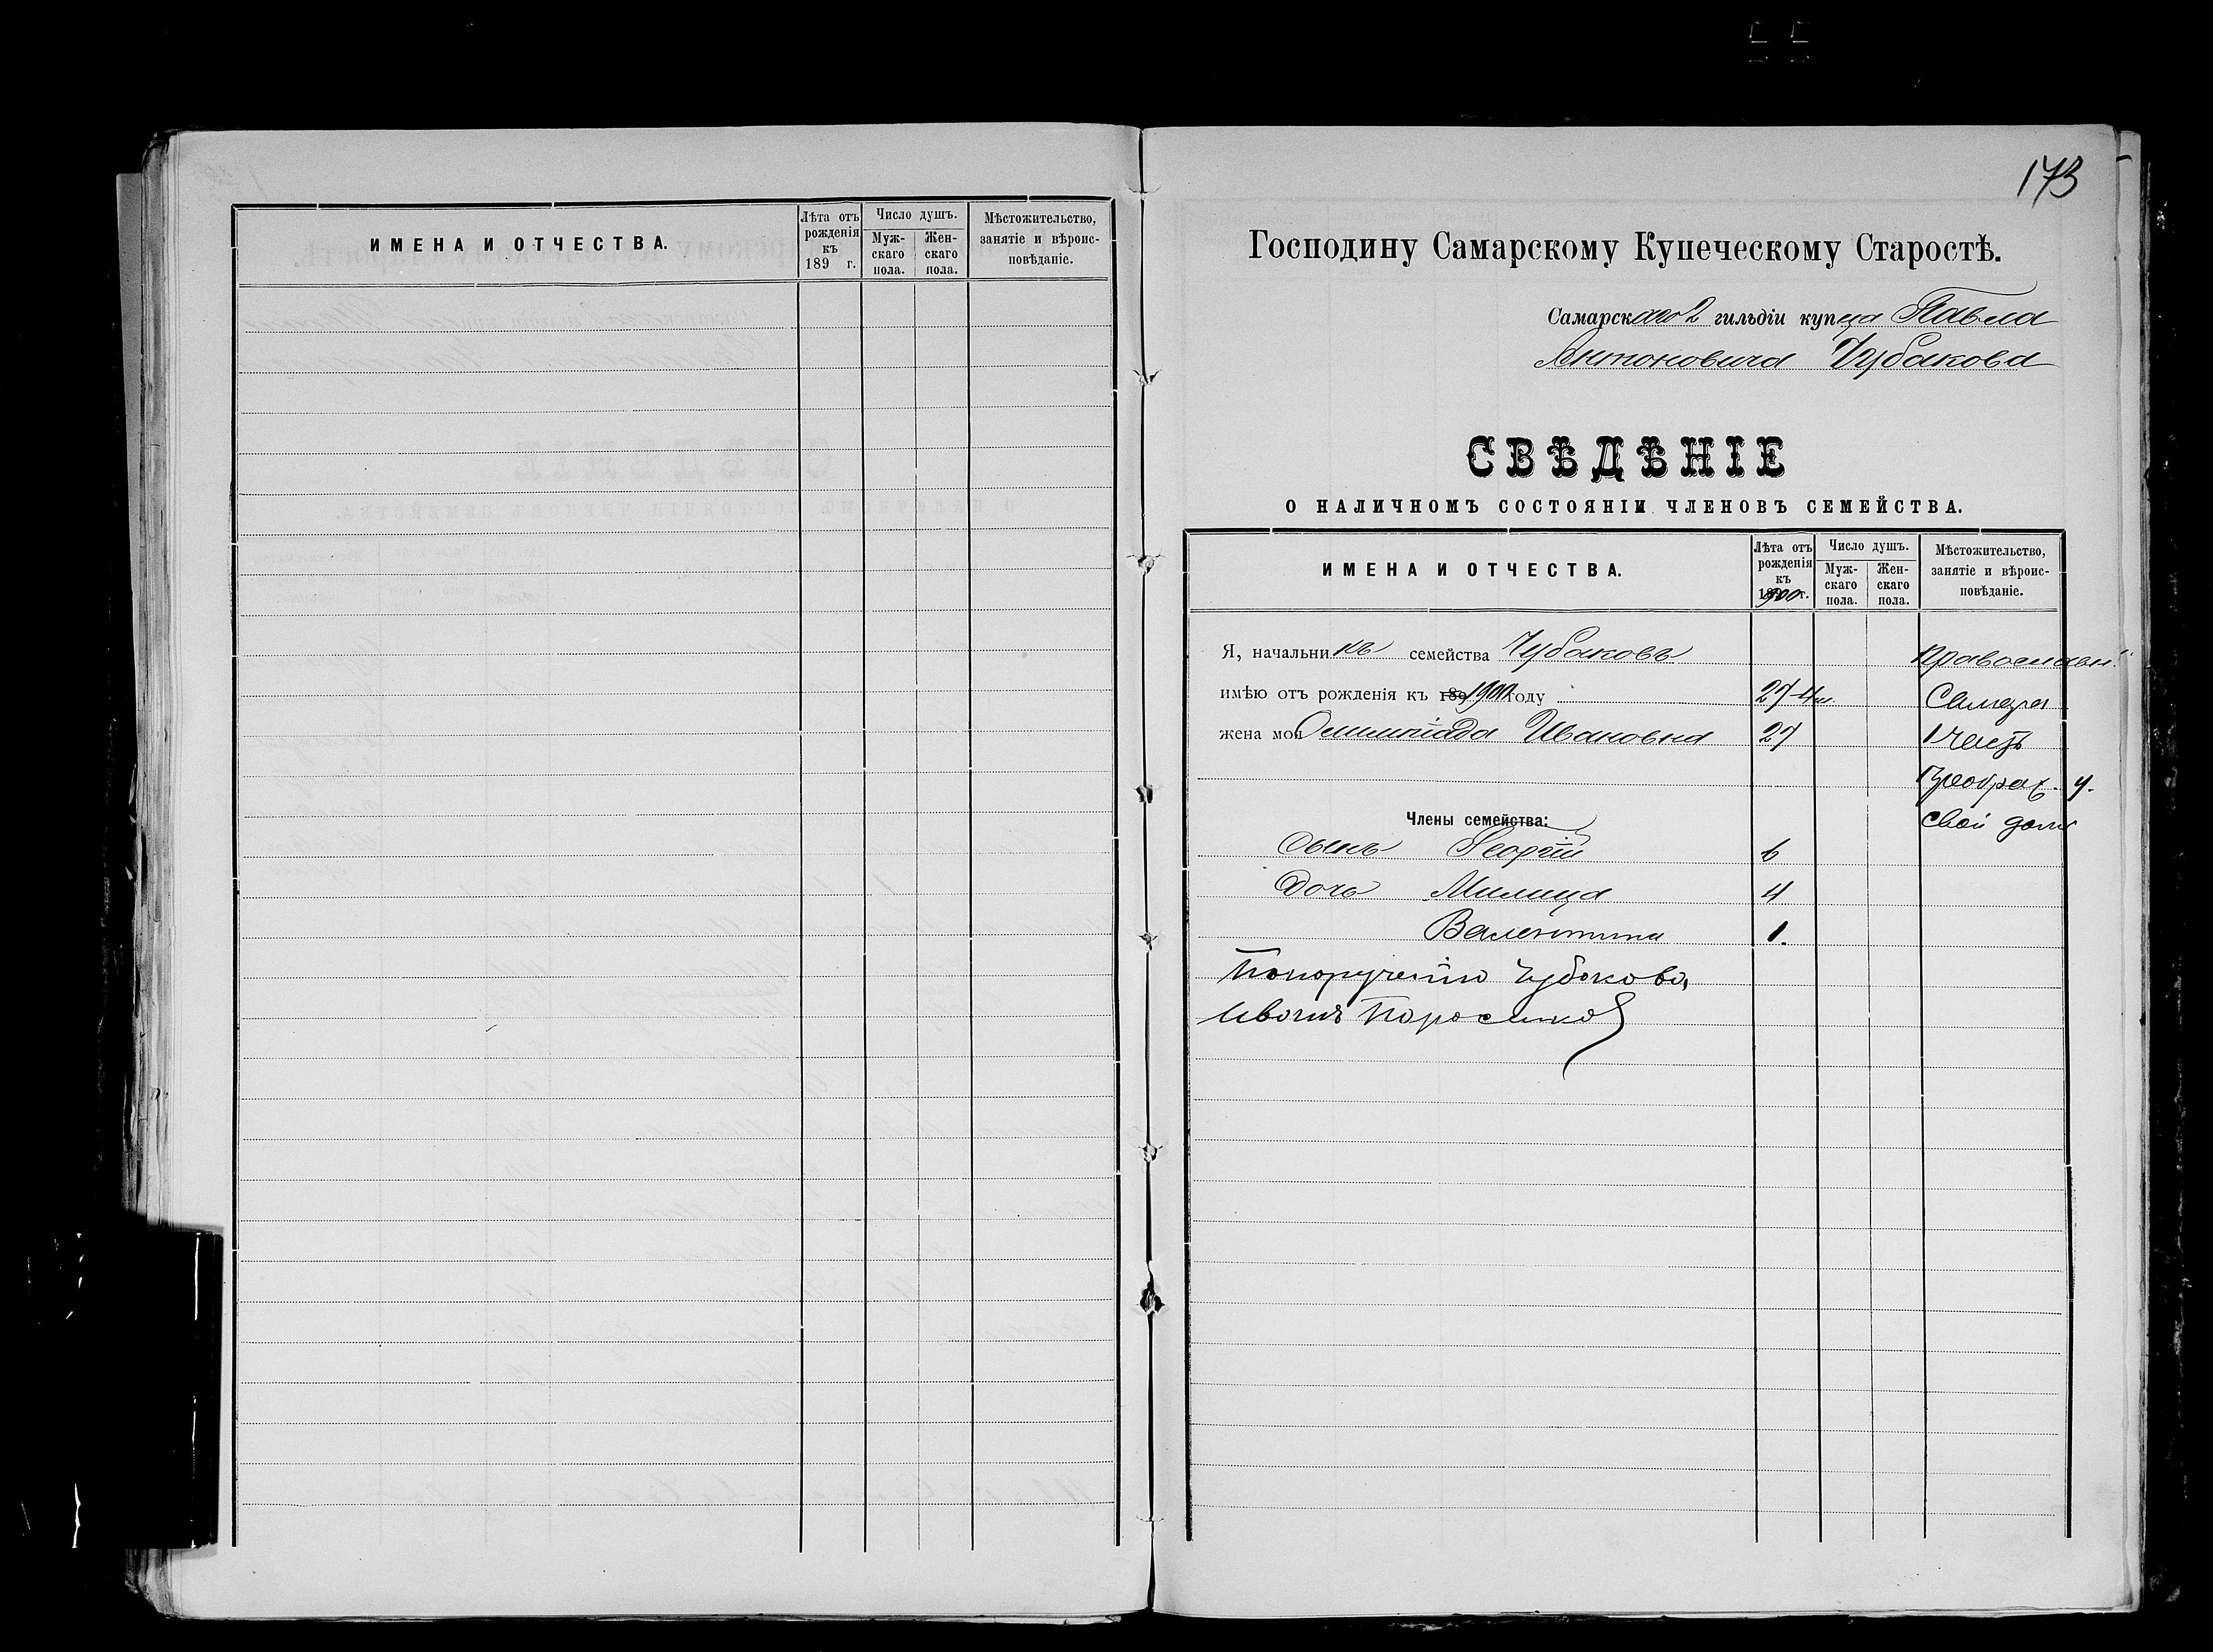 ИМЕНА И ОТЧЕСТВА.
Лѣта отъ рожденія къ 189 г.
Число душъ.
Мужскаго пола.
Женскаго пола.
Мѣстожительство, занятіе и вѣроисповѣданіе.
173
Господину Самарскому Купеческому Старостѣ.
Самарскаго 2 гильдіи купца Павла
Антоновича Чубакова
СВѢДѢНІЕ
О НАЛИЧНОМЪ СОСТОЯНІИ ЧЛЕНОВЪ СЕМЕЙСТВА.
ИМЕНА И ОТЧЕСТВА.
Лѣта отъ рожденія къ 1900 г.
Число душъ.
Мужскаго пола.
Женскаго пола.
Мѣстожительство, занятіе и вѣроисповѣданіе.
Я, начальникъ семейства Чубаковъ Православн.
имѣю отъ рожденія къ 1900 году 27 Самара
жена моя Олимпіада Ивановна 27 1 часть
Преображ. у.
Члены семейства: свой домъ
Сынъ Георгій 6
Дочь Милица 4
Валентина 1.
По порученію Чубакова,
Иванъ